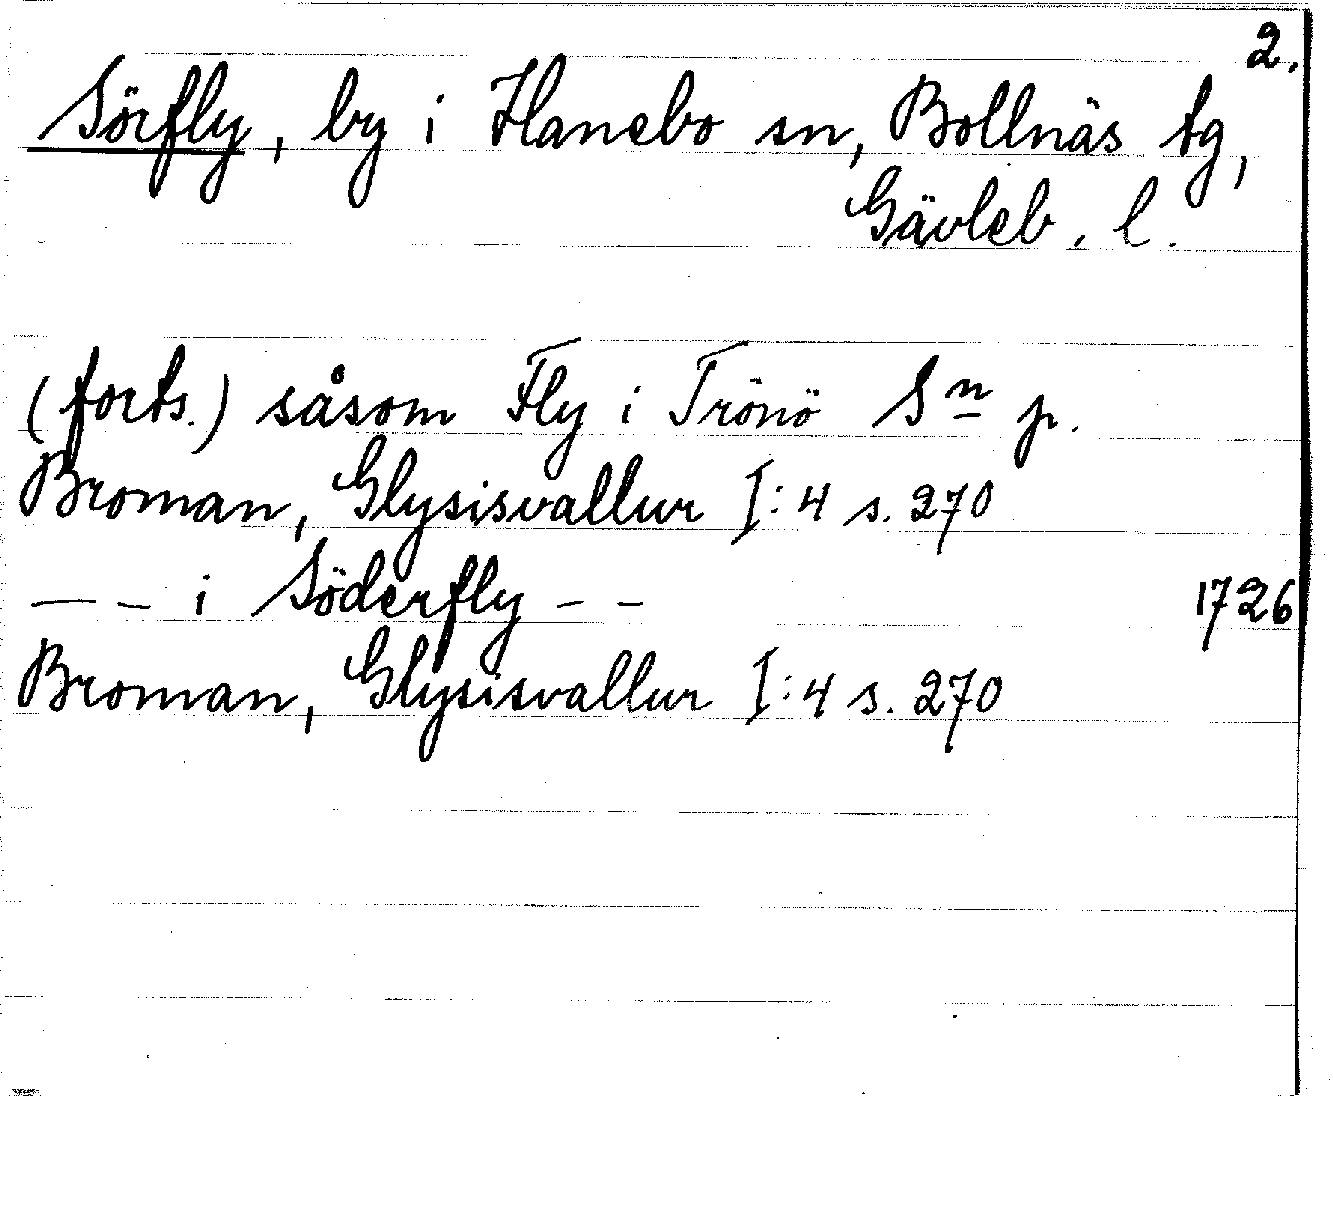 2.
Sörfly, by i Hanebo sn, Bollnäs tg,
Gävleb. l.
(forts.) såsom Fly i Trönö Sn p.
Broman, Glysisvallur I:4 s. 270
— – i Söderfly – – 1726
Broman, Glysisvallur I:4 s. 270